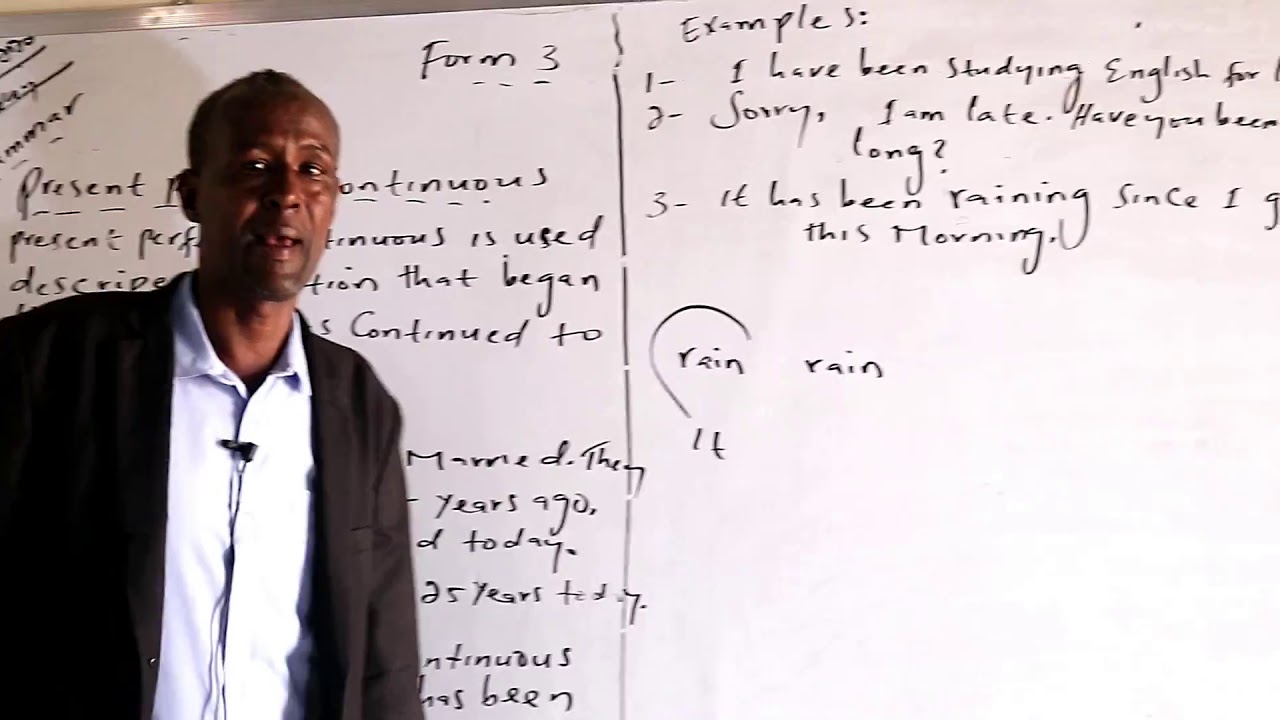 Form 3
Present continuous
present continuous is used
describe that began
Continued to
Married. They
years ago,
today.
25 years today.
has been
Examples:
1- I have been studying English for
2- Sorry, I am late. Have you been
long?
3- It has been raining since I
this Morning.
rain rain
It